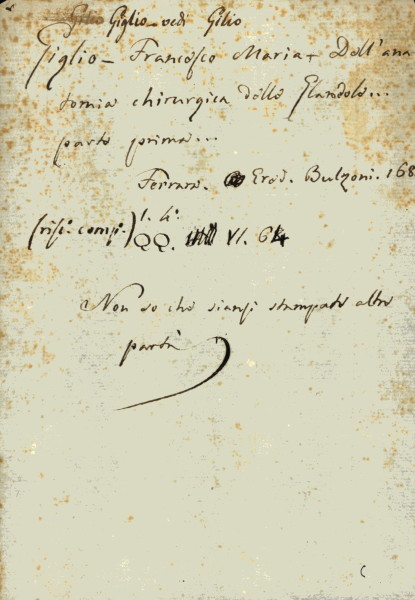 Giglio vedi Gilio
Giglio - Francesco Maria - Dell'ana
tomia chirurgica delle Glandole...
parte prima...
Ferrara. Ered. Bulzoni. 168
(risp. comp.) 1. 4.
QQ. VI. 64
Non so che siansi stampate altre
parti